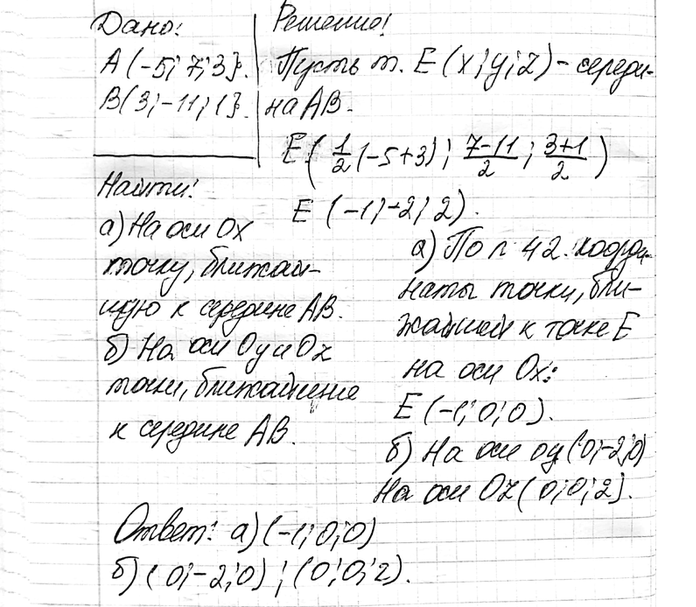 Дано:
A(-5; 7; 3}.
B(3; -11; 1}.
Найти:
а) На оси Ox
точку, ближай-
шую к середине AB.
б) На оси Oy и Oz
точки, ближайшие
к середине AB.
Решение:
Пусть т. E (x; y; z) - середи-
на AB.
E( 1/2 (-5+3); (7-11)/2; (3+1)/2 )
E (-1; -2; 2).
а) По п 42. коорди-
наты точки, бли-
жайшей к точке E
на оси Ox:
E (-1; 0; 0).
б) На оси oy (0; -2; 0)
На оси Oz (0; 0; 2).
Ответ: а) (-1; 0; 0)
б) (0; -2; 0); (0; 0; 2).